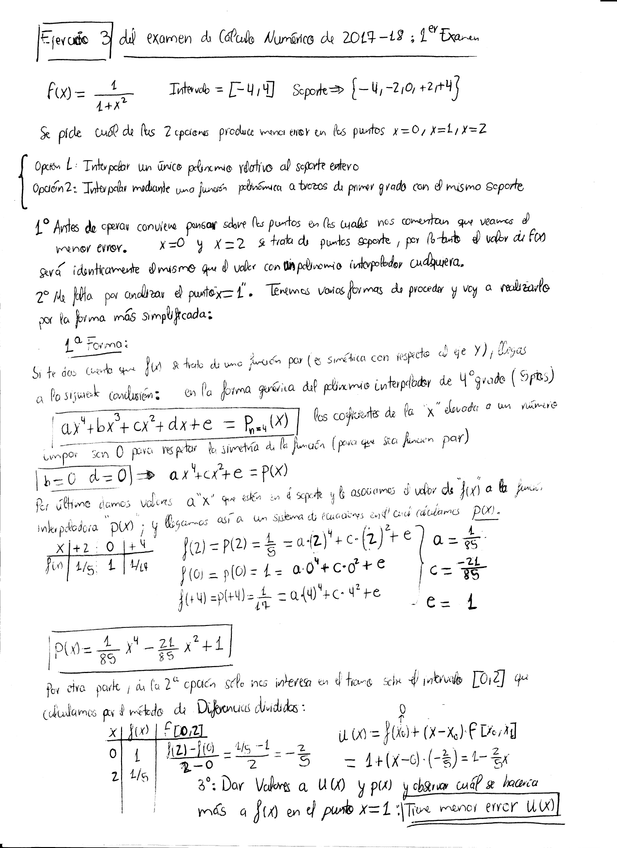 Ejercicio 3 del examen de Cálculo Numérico de 2017-18 : 1er Examen
f(x) = 1/(1+x²) Intervalo = [-4,4] Soporte ⇒ {-4,-2,0,+2,+4}
Se pide cuál de las 2 opciones produce menor error en los puntos x=0, x=1, x=2
Opción 1: Interpolar un único polinomio relativo al soporte entero
Opción 2: Interpolar mediante una función polinómica a trozos de primer grado con el mismo soporte
1º Antes de operar conviene pensar sobre los puntos en los cuales nos comentan que veamos el
menor error. x=0 y x=2 se trata de puntos soporte, por lo tanto el valor de f(x)
será identicamente el mismo que el valor con un polinomio interpolador cualquiera.
2º Me falta por analizar el punto "x=1". Tenemos varias formas de proceder y voy a realizarlo
por la forma más simplificada:
1ª Forma:
Si te das cuenta que f(x) se trata de una función par (es simética con respecto al eje Y), llegas
a la siguiente conclusión: en la forma genérica del polinomio interpolador de 4º grado (5 ptos)
ax⁴+bx³+cx²+dx+e = Pn=4(x) los coeficientes de la "x" elevada a un número
impar son 0 para respetar la simetría de la función (para que sea función par)
b=0 d=0 ⇒ ax⁴+cx²+e = P(x)
Por último damos valores a "x" que estén en el soporte y le asociamos el valor de "f(x)" a la
interpoladora "p(x)"; y llegamos así a un sistema de ecuaciones calculamos p(x).
x | +2 | 0 | +4
f(x) | 1/5 | 1 | 1/17
f(2) = P(2) = 1/5 = a·(2)⁴+c·(2)²+e
f(0) = p(0) = 1 = a·0⁴+c·0²+e
f(+4) = p(+4) = 1/17 = a·(4)⁴+c·4²+e
a = 1/85
c = -21/85
e = 1
P(x) = 1/85 x⁴ - 21/85 x² + 1
Por otra parte, de la 2ª opción sólo nos interesa en el tramo sobre el intervalo [0,2] que
calculamos por el método de Diferencias divididas:
x | f(x) | f[0,2]
0 | 1 | (f(2)-f(0))/(2-0) = (1/5-1)/2 = -2/5
2 | 1/5
0
u(x) = f(x₀)+(x-x₀)·f[x₀,x₁]
= 1+(x-0)·(-2/5) = 1-2/5x
3º: Dar Valores a u(x) y p(x) y observar cuál se hacerca
más a f(x) en el punto x=1: Tiene menor error u(x)